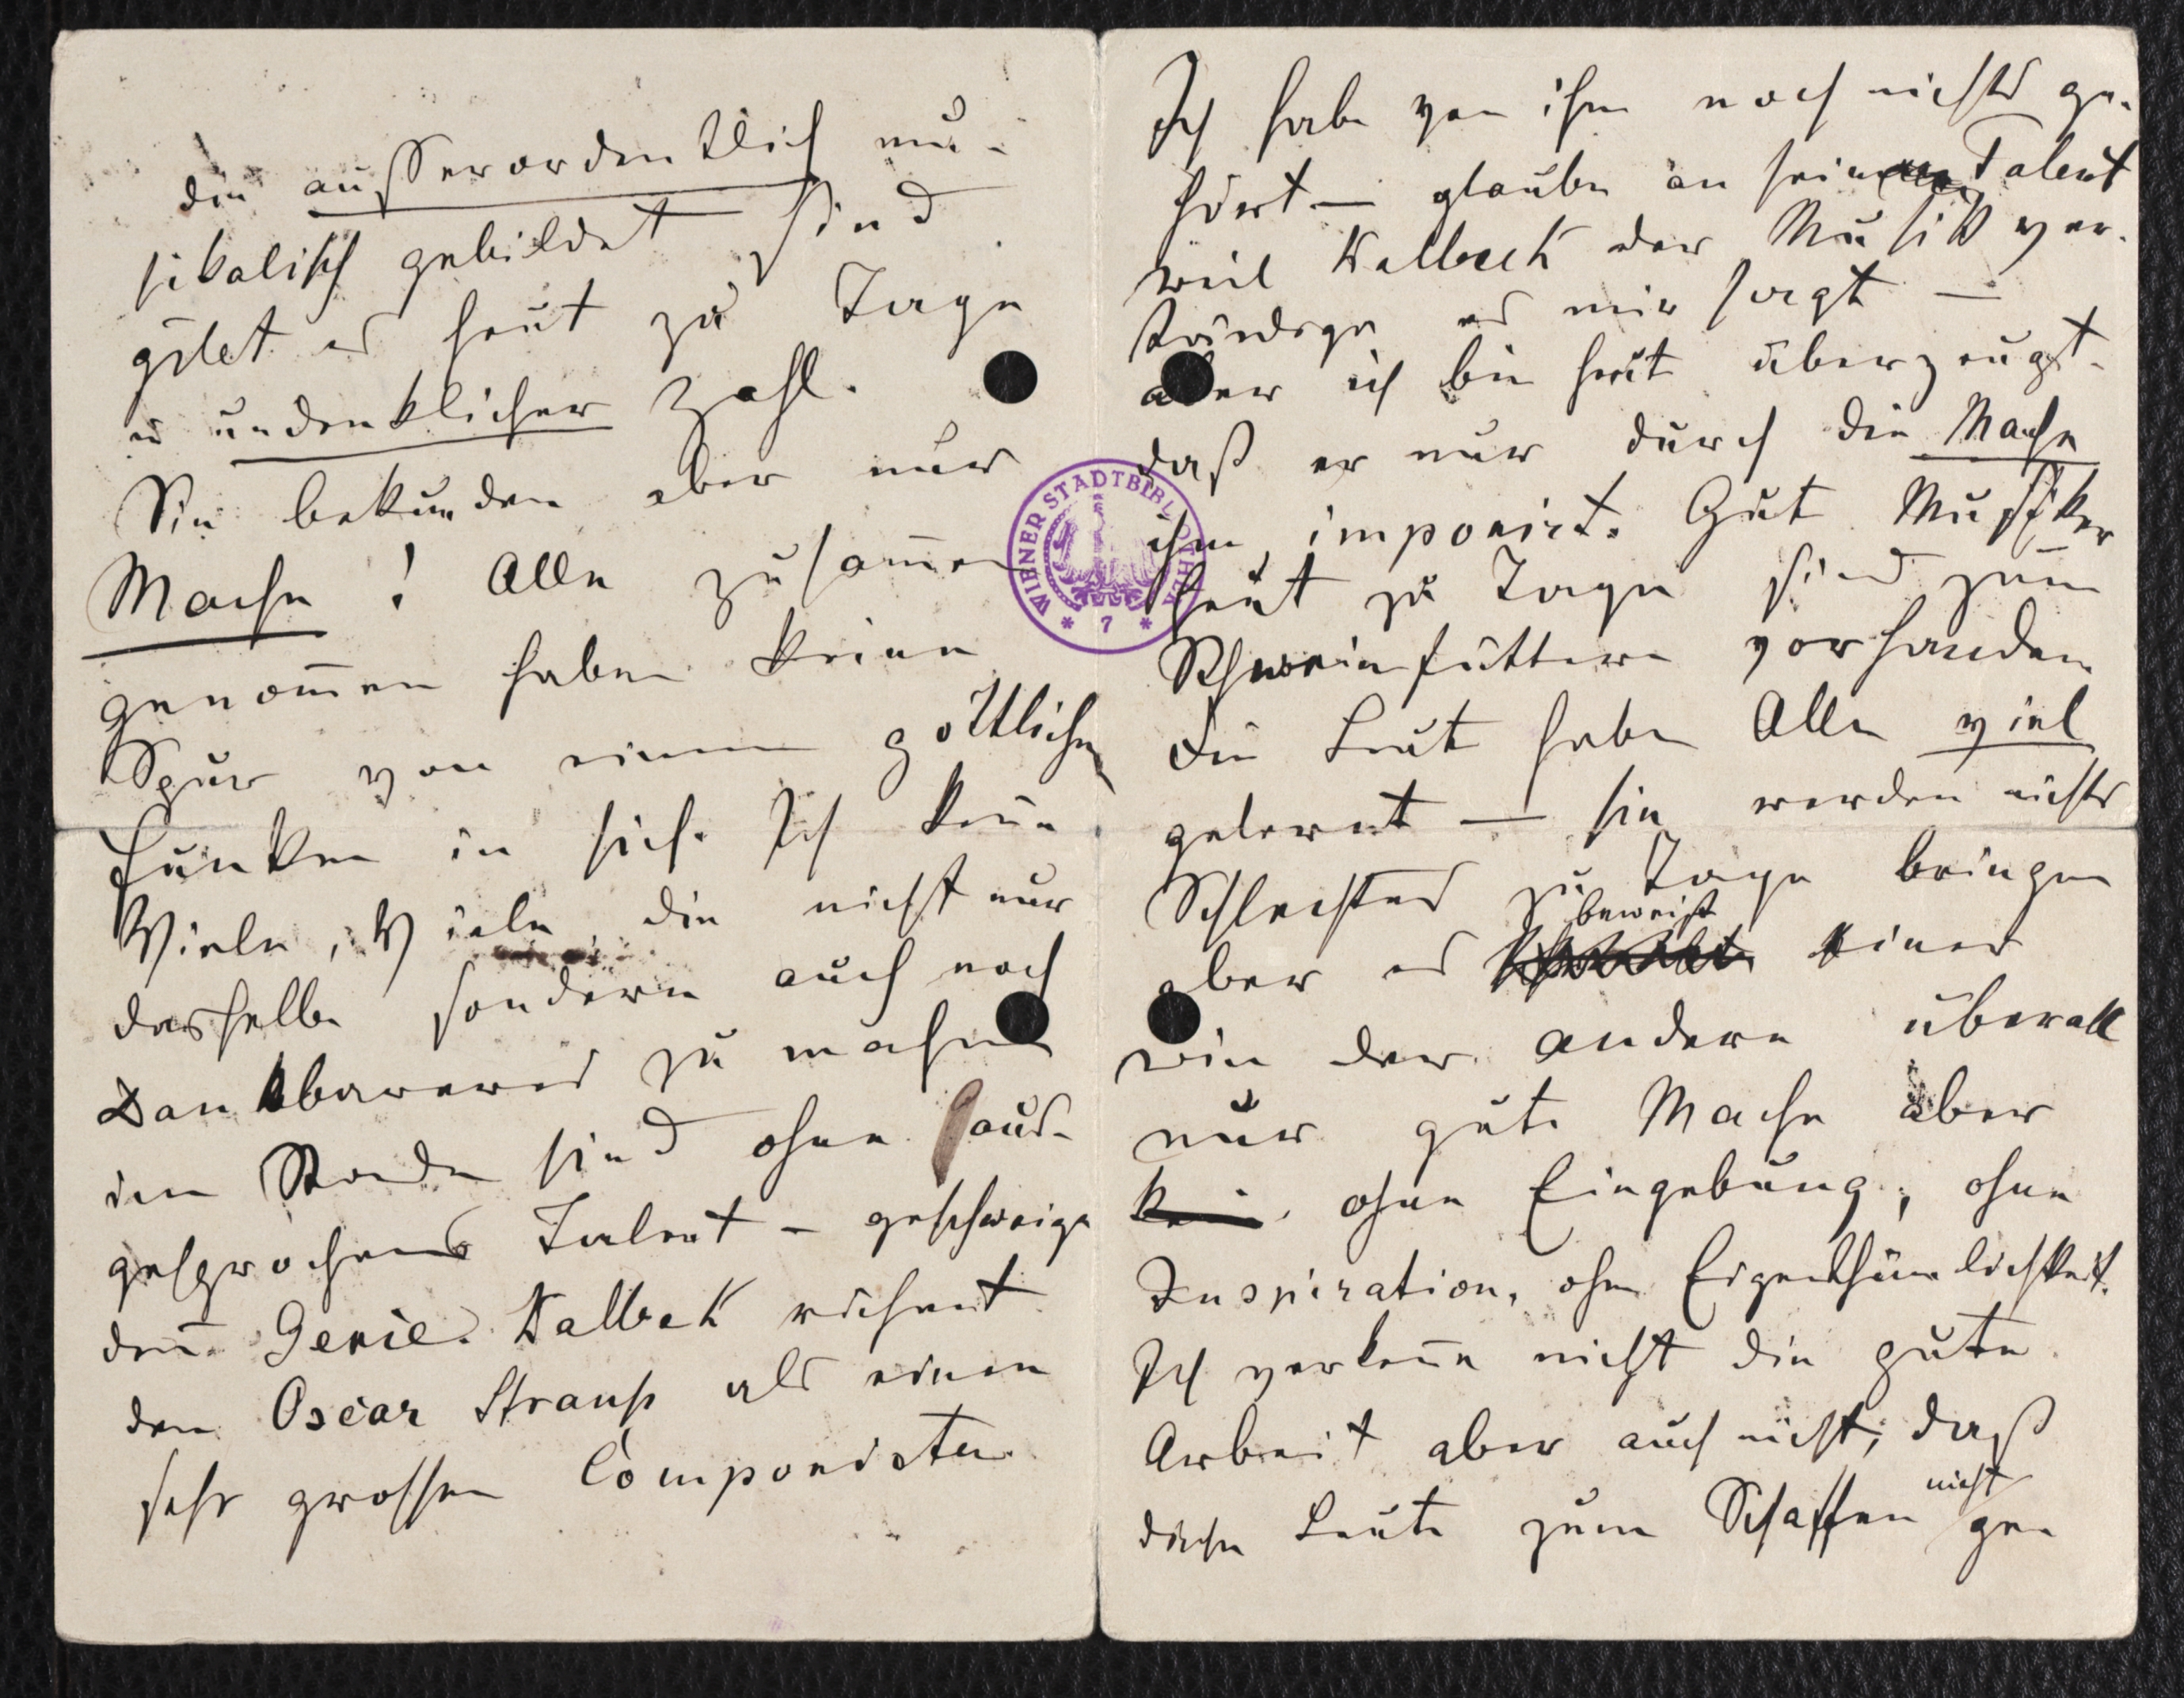 die außerordentlich mu-
sikalisch gebildet sind
gibt es heut zu Tage
in undenklicher Zahl.
Sie bekunden aber nur
Mache! Alle zusam̄en
genom̄en haben keine
Spur von einem göttlichen
Funken in sich. Ich keñe
Viele, Viele, die nicht nur
dasselbe sondern auch noch
Dankbareres zu machen
im Stande sind ohne aus-
gesprochenes Talent – geschweige
deñ Genie. Kalbek rechnet
den Oscar Strauß als einen
sehr grossen Componisten
Ich habe von ihm noch nichts ge-
hört – glaube an sein Talent
weil Kalbeck der Musikver-
ständige es mir sagt –
aber ich bin heut überzeugt
daß er nur durch die Mache
ihm imponirt. Gute Musiker
heut zu Tage sind zum
Schweinfüttern vorhanden
Die Leute haben Alle viel
gelernt – sie werden nichts
Schlechtes zu Tage bringen
beweist
aber es einer
wie der andere überall
nur gute Mache aber
kein ohne Eingebung, ohne
Inspiration, ohne Eigenthümlichkeit.
Ich verkeñe nicht die gute
Arbeit aber auch nicht, daß
nicht
diese Leute zum Schaffen ge-
WIENER STADTBIBLIOTHEK
* 7 *